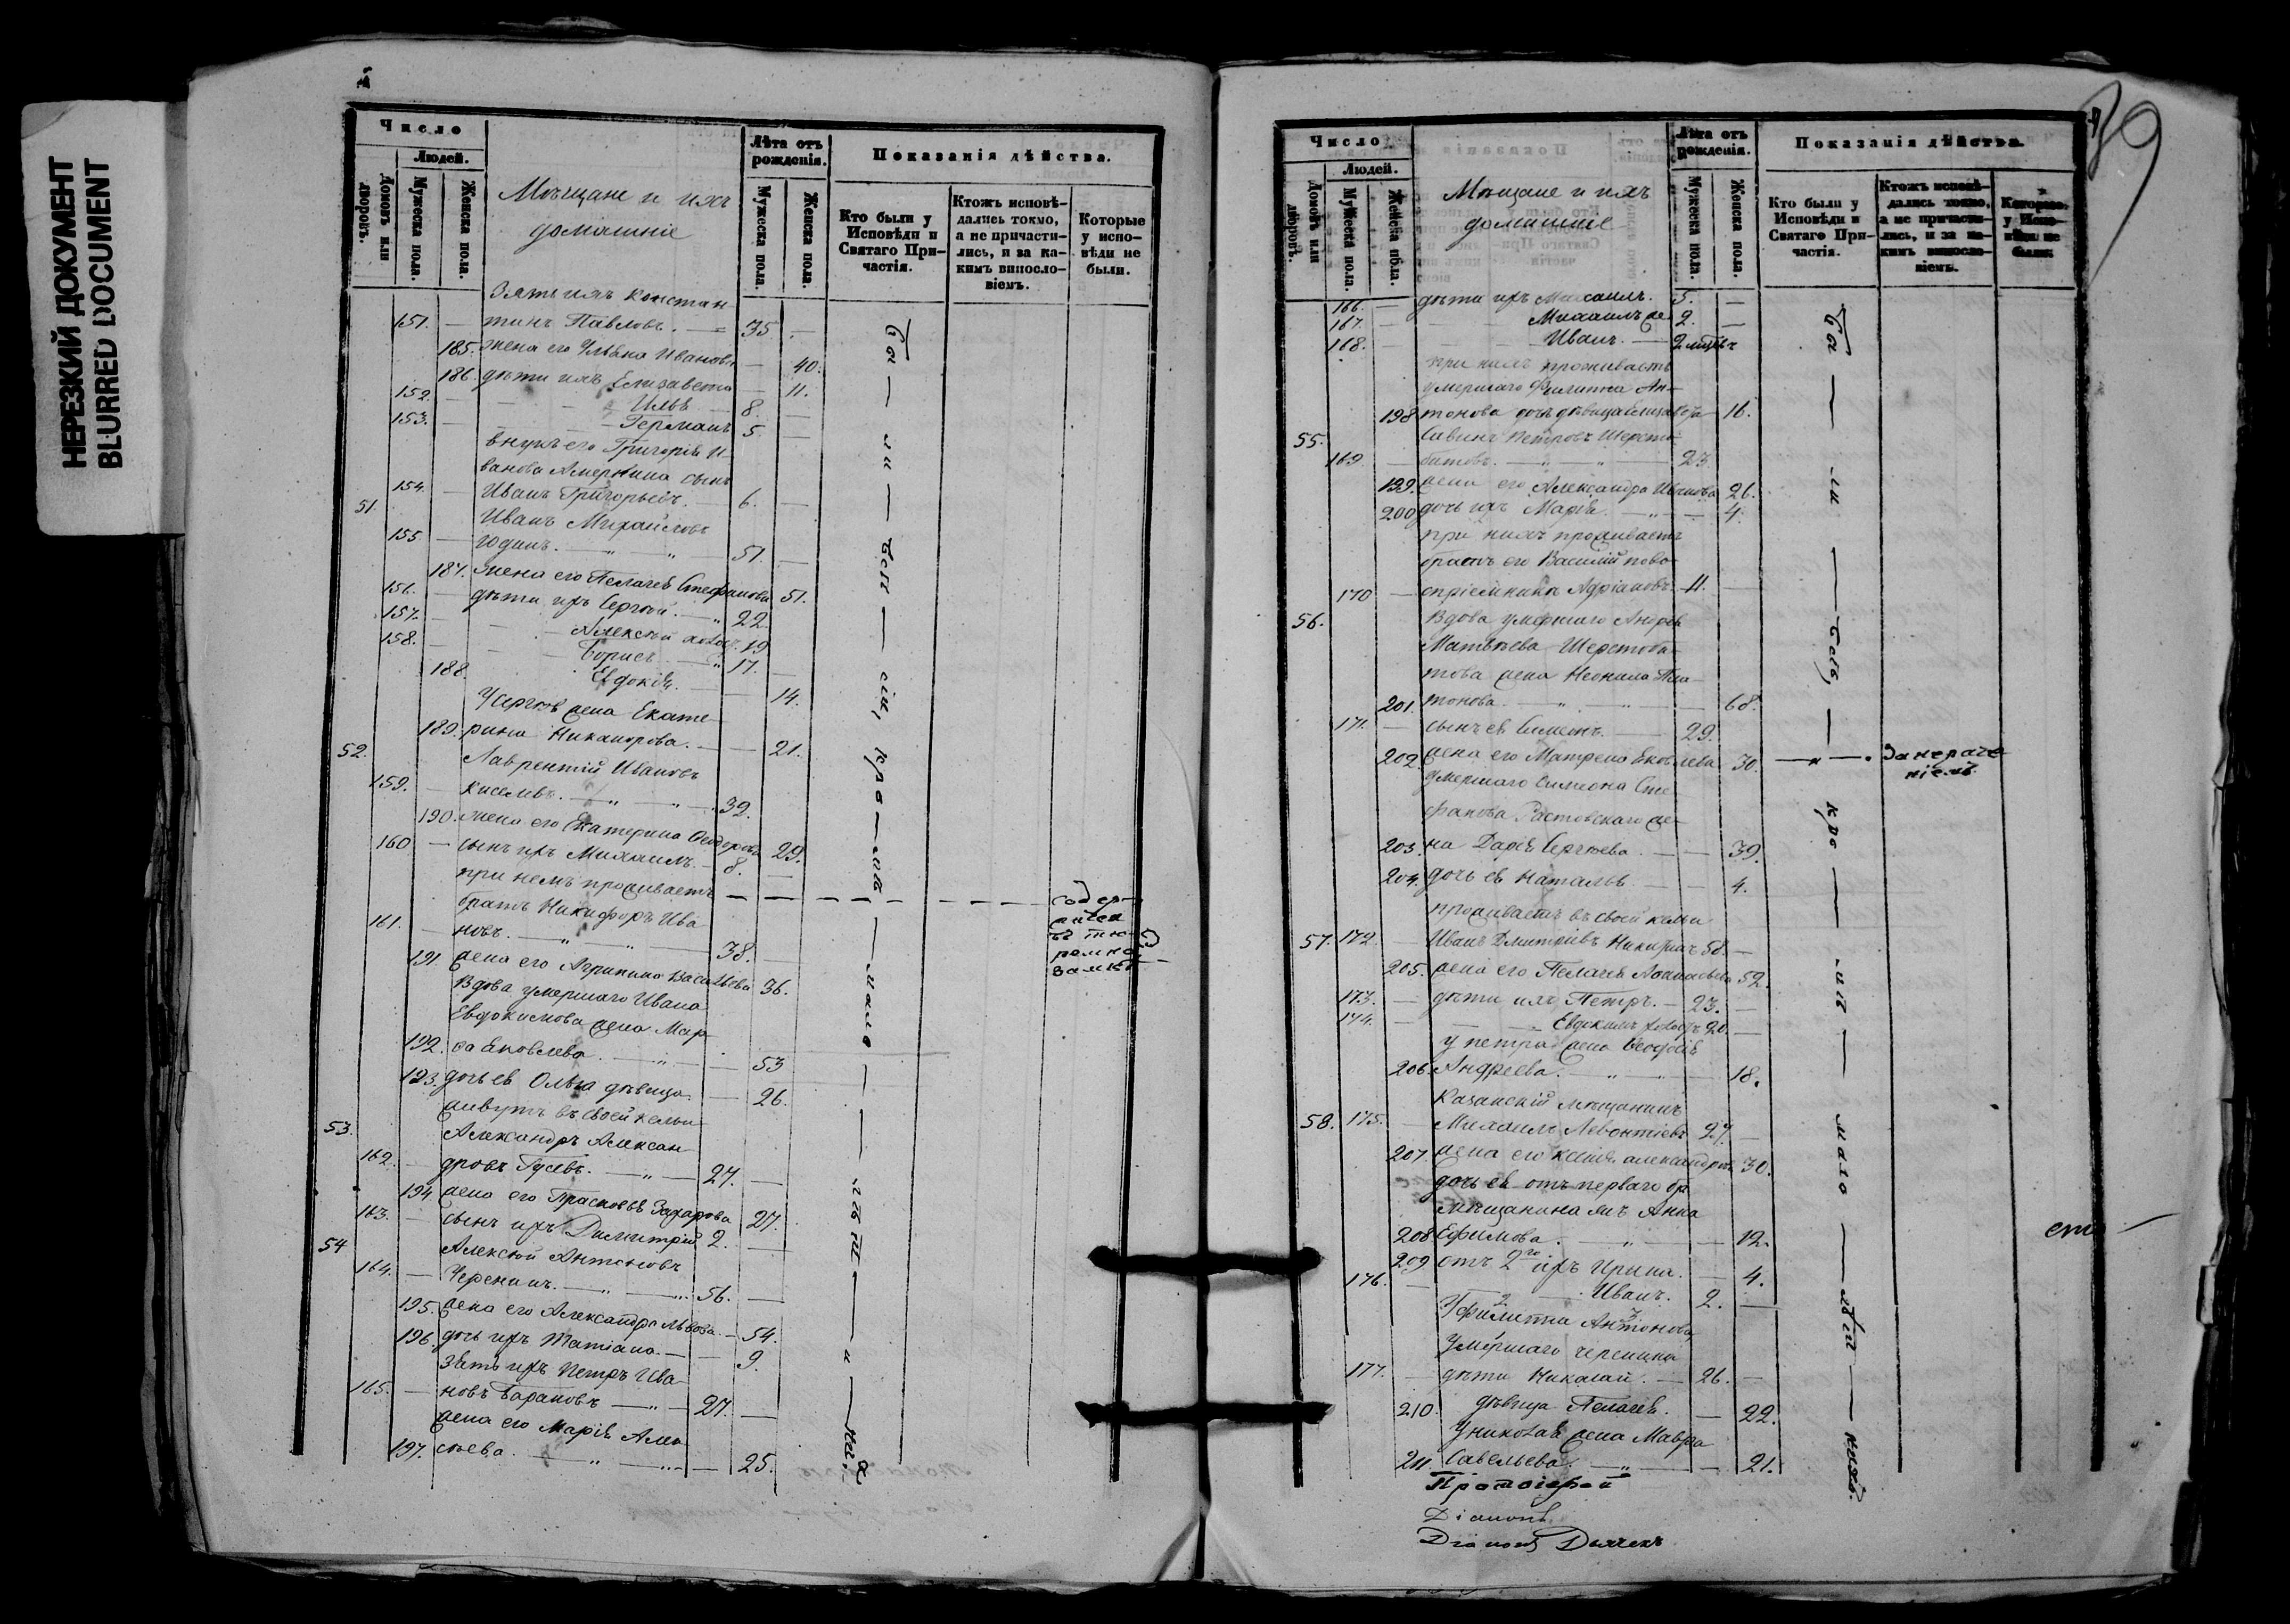 НЕРЕЗКИЙ ДОКУМЕНТ
BLURRED DOCUMENT
Число
Людей.
Домовъ или дворовъ.
Мужеска пола.
Женска пола.
Мѣщане и ихъ
домашніе
Лѣта отъ рожденія.
Мужеска пола.
Женска пола.
Показанія дѣйства.
Кто были у Исповѣди и Святаго Причастія.
Ктожъ исповѣ-
дались токмо,
а не причасти-
лись, и за ка-
кимъ виносло-
віемъ.
Которые
у испо-
вѣди не
были.
Зять ихъ Констан
151. — тинъ Павловъ. — 35 —
185. жена его Улѣяна Иванов — 40.
186. дѣти ихъ Елизавета — 11.
152. — Илья 8. —
153. — Германъ 5. —
внукъ его Григорія И
ванова сынъ
154. — Иванъ Григорьевъ. 6. —
51. Иванъ Михайловъ
155 — Юдинъ. — 51. —
187. жена его Пелагея Стефанова 51.
156. — дѣти ихъ Сергѣй. — 22
157. — Алексѣй холост. 19
158. — Борисъ — 17. —
188. Евдокія. — 14.
У Сергѣя жена Екате
189. рина Никанорова. — 21.
52. Лаврентій Ивановъ
159. — Киселевъ. — 39.
190. жена его Екатерина Ѳеодорова 29.
160 — сынъ ихъ Михаилъ. — 8. —
при немъ проживаетъ
братъ Никифоръ Ива
161. — новъ. — 38. —
содер-
жится
въ тю-
ремно
замкѣ
191. жена его Агрипина Васильева 36.
Вдова умершаго Ивана
Евдокимова жена Мар
192. ѳа Яковлева. — 53
193. дочь ея Ольга дѣвица — 26.
живутъ въ своей кельи
53. Александръ Алексан
162. — дровъ Гусевъ. — 27. —
194 жена его Прасковья Захарова 27.
163. — сынъ ихъ Димитрій 2. —
54 Алексѣй Антоновъ
164. — Черенинъ. — 56. —
195. жена его Александра Львова. — 54.
196. дочь ихъ Татіана. — 9.
Зять ихъ Петръ Ива
165. — новъ Барановъ — 27. —
жена его Марія Алек
197. сѣева. — 25.
Бы — ли — Всѣ — сіи, кро — мѣ — мало — лѣт — и — ихъ
89
Число
Людей.
Домовъ или дворовъ.
Мужеска пола.
Женска пола.
Мѣщане и ихъ
домашніе
Лѣта отъ рожденія.
Мужеска пола.
Женска пола.
Показанія дѣйства.
Кто были у Исповѣди и Святаго Причастія.
Ктожъ исповѣ-
дались токмо,
а не причасти-
лись, и за ка-
кимъ винослo-
віемъ.
Которые
у Испо-
вѣди не
были.
166. — дѣти ихъ Михаилъ. 5. —
167. — Михаилъ же 2. —
168. — Иванъ. — 2 мѣсяц
при нихъ проживаетъ
умершаго Филиппа Ан-
198 тонова дочь дѣвица Елизавета 16.
55. Савинъ Петровъ Шерсто-
169. — битовъ. — 23
199. жена его Александра Иванова 26.
200 дочь ихъ Марія. — 4.
при нихъ проживаетъ
братъ его Василій ново
170 — спріемникъ Адріановъ. 11. —
56. Вдова умершаго Андрея
Матвѣева Шерстоби-
това жена Неонила Пла
201. тонова. — 68.
171. — сынъ ея Симеонъ. — 29.
202. жена его Матрена Яковлева 30. Занераче
ніемъ.
умершаго Симеона Сте
фанова Растовскаго же
203. на Дарія Сергѣева. — 39.
204. дочь ея Наталья — 4.
проживаетъ въ своей кельи
57. 172. — Иванъ Дмитріевъ Никитинъ 58. —
205. жена его Пелагея Аѳанасьева 52.
173. — дѣти ихъ Петръ. — 23. —
174. — Евдокимъ холост 20. —
у Петра жена Ѳеодосія
206. Андреева. — 18.
Казанскій мѣщанинъ
58. 175. — Михаилъ Леонтіевъ 27. —
207. жена его Ксенія Александров. 30.
дочь ея отъ перваго бр
мѣщанина Анна
208 Ефимова. — 12.
209 отъ 2го ихъ Ирина. — 4.
176. — Иванъ. 2. —
Филиппа Антонова
умершаго Черенина
177. — дѣти Николай. — 26. —
210. дѣвица Пелагея. — 22.
У Николая жена Мавра
211. Савельева. — 21.
Бы — ли — Всѣ, — кро — мѣ — мало — лѣт — нихъ.
Протоіерей
Діаконъ
Діаконъ Дьячекъ